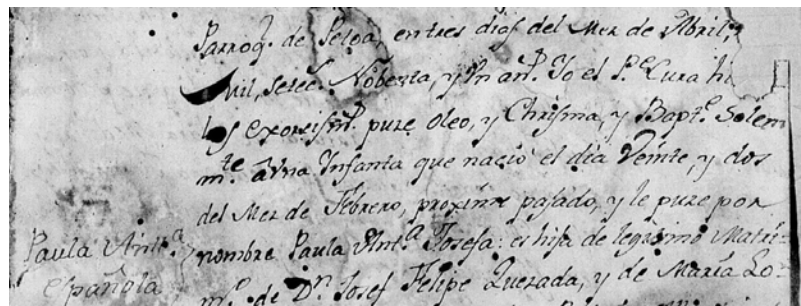 Parroq. de Peloa, en tres dias del Mez de Abril,
Mil, setec.s Nobenta, y un an.s Yo el P.e Cura hi
los exorcism.s puze oleo, y Chrisma, y Bapt.e Solem
m.te â Vna Infanta que nacio el dia Veinte, y dos
del Mez de Febrero, proximo pasado, y le puze por
nombre Paula Ant.a Josefa: es hija de legitimo Matri-
m.o de D.n Josef Felipe Quezada, y de Maria Lo-
Paula Ant.a
española